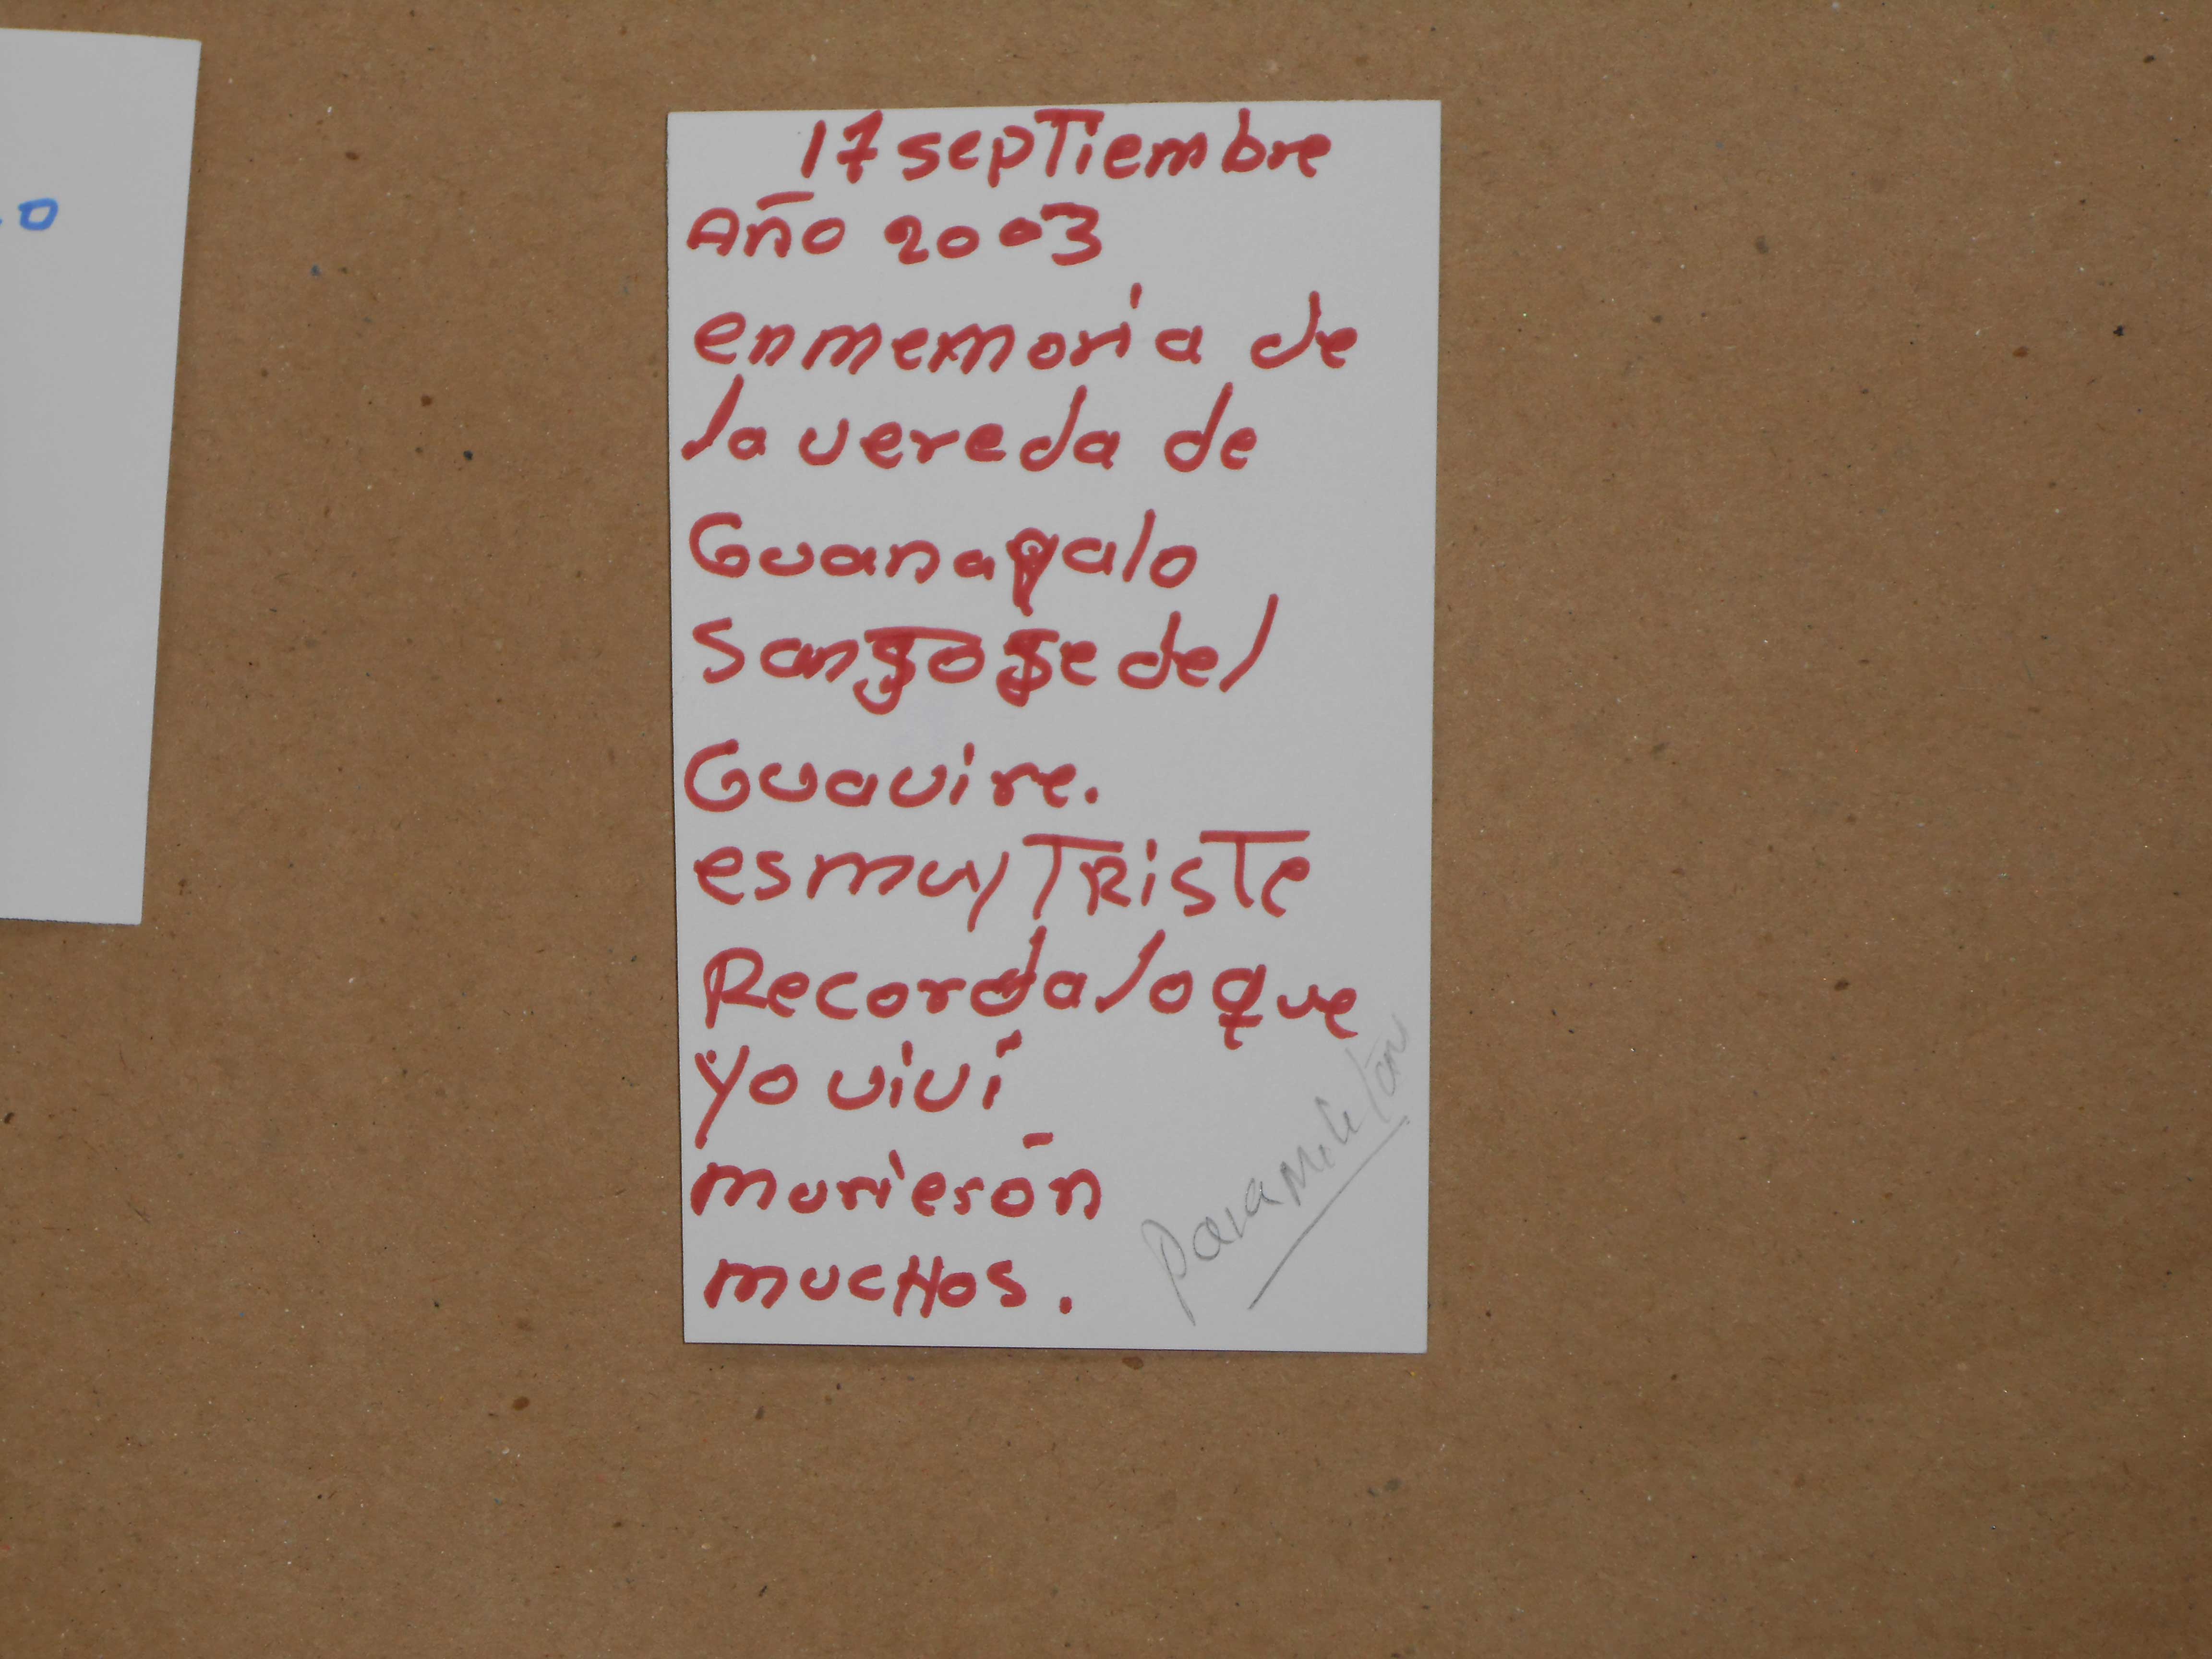 17 septiembre
Año 2003
en memoria de
la vereda de
Guanapalo
San Jose del
Guavire.
es muy TRisTe
Recorda lo que
yo viví
murierón
mucHos.
paramilitar